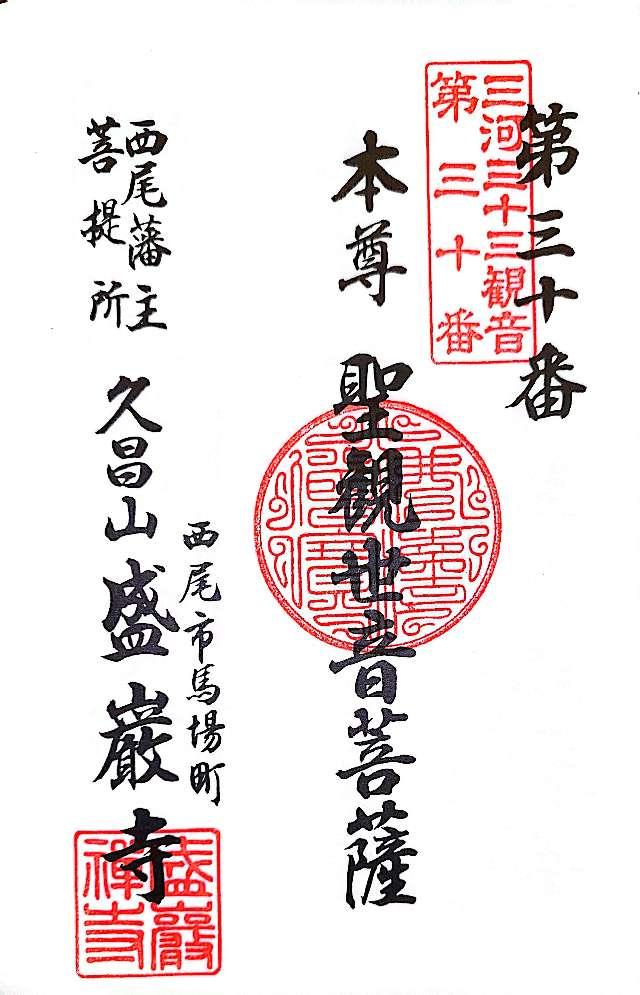 第三十番
三河三十三観音
第三十番
本尊
聖觀世音菩薩
西尾市馬場町
西尾藩主
菩提所
久昌山盛巖寺
盛巖
禅寺